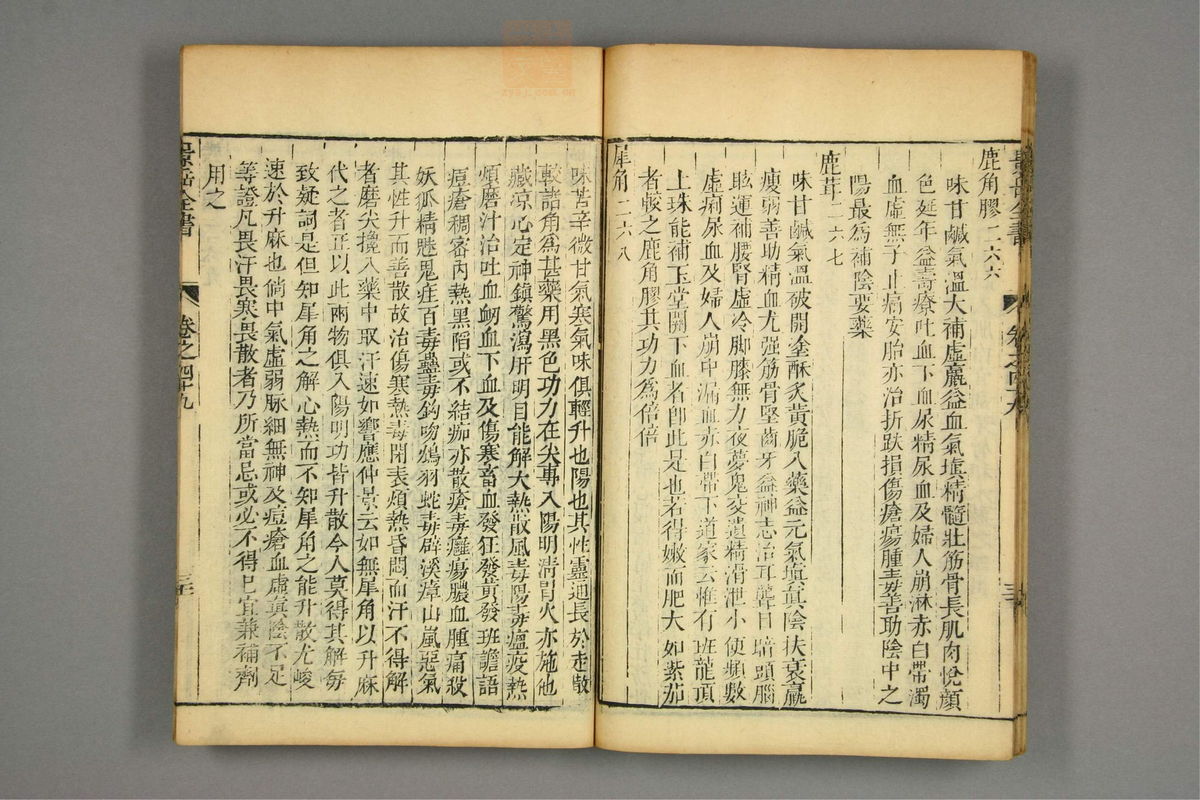 景岳全書
卷之四十九
鹿角膠二六六
味甘鹹氣溫大補虛羸益血氣塡精髓壯筋骨長肌肉悅顏
色延年益壽療吐血下血尿精尿血及婦人崩淋赤白帶濁
血虛無子止痛安胎亦治折跌損傷瘡瘍腫毒善助陰中之
陽最爲補陰要藥
鹿茸二六七
味甘鹹氣溫破開塗酥炙黃脆入藥益元氣塡眞陰扶衰羸
瘦弱善助精血尤强筋骨堅齒牙益神志治耳聾目暗頭腦
眩運補腰腎虛冷脚膝無力夜夢鬼交遺精滑泄小便頻數
虛痢尿血及婦人崩中漏血赤白帶下道家云惟有班龍頂
上珠能補玉堂關下血者卽此是也若得嫩而肥大如紫茄
者較之鹿角膠其功力爲倍倍
犀角二六八
味苦辛微甘氣寒氣味俱輕升也陽也其性靈通長於走散
較諸角爲甚藥用黑色功力在尖專入陽明淸胃火亦施他
藏凉心定神鎭驚瀉肝明目能解大熱散風毒陽毒瘟疫熱
煩磨汁治吐血衂血下血及傷寒畜血發狂發黃發班譫語
痘瘡稠密內熱黑陷或不結痂亦散瘡毒癰瘍膿血腫痛殺
妖狐精魅鬼疰百毒蠱毒鈎吻鴆羽蛇毒辟溪瘴山嵐惡氣
其性升而善散故治傷寒熱毒閉表煩熱昏悶而汗不得解
者磨尖攙入藥中取汗速如響應仲景云如無犀角以升麻
代之者正以此兩物俱入陽明功皆升散今人莫得其解每
致疑詞是但知犀角之解心熱而不知犀角之能升散尤峻
速於升麻也倘中氣虛弱脉細無神及痘瘡血虛眞陰不足
等證凡畏汗畏寒畏散者乃所當忌或必不得已宜兼補劑
用之
景岳全書
卷之四十九